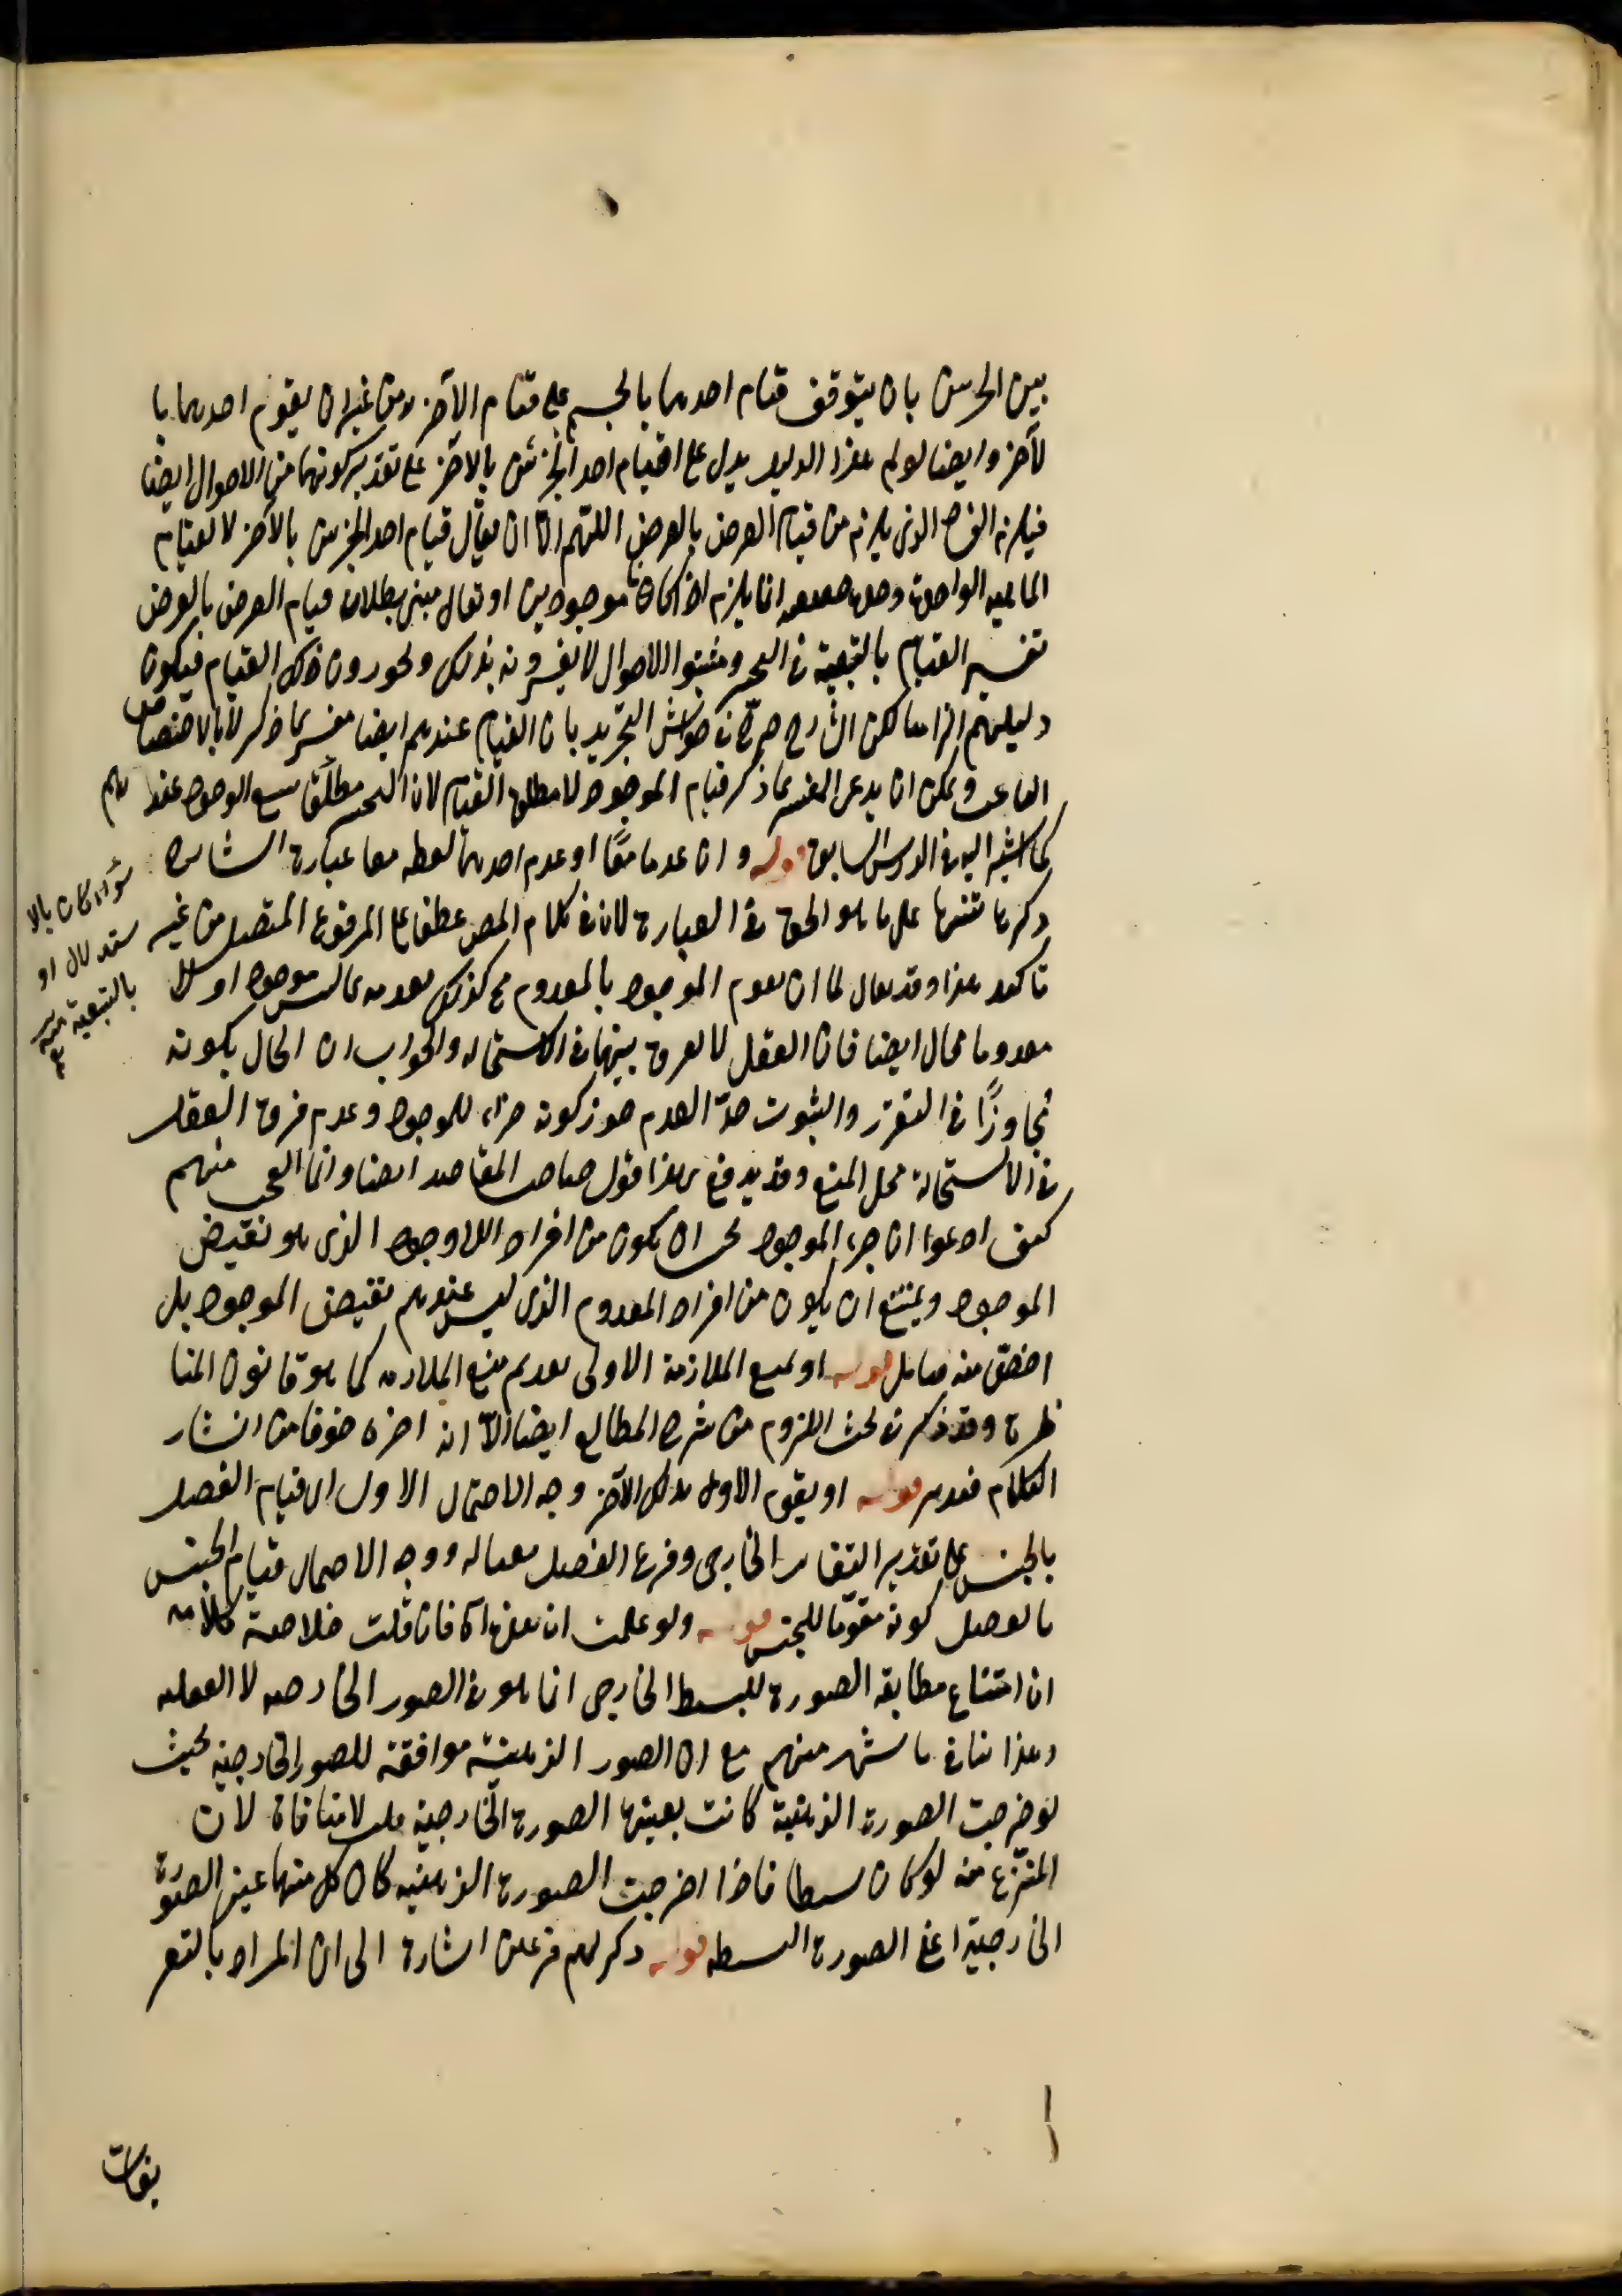 بين الجزئين بان يتوقف قيام احدهما بالجسم على قيام الآخر من غير ان يقوم احدهما با
لآخر وايضا لو تم هذا الدليل يدل على قيام احد الجزئين بالآخر على تقدير كونهما من الاحوال ايضا
فيلزم الذى يلزم من قيام العرض بالعرض اللهم الا ان يقال قيام احد الجزئين بالآخر لا لقيام
الماهية الواحدة وحدة حقيقية انما يلزم اذا كانا موجودين او يقال مبنى بطلان قيام العرض بالعرض
تفسير القيام بالتبعية فى التحيز ومثبتوا الاحوال لا يفسرونه بذلك ويجوزون ذلك القيام فيكون
دليلهم الزاميا لكن الشارح صرح فى حواشى التجريد بان القيام عندهم ايضا مفسر بما ذكر لا بالاختصاص
الناعت ويمكن ان يدعى المفسر بما ذكر قيام الموجود لا مطلق القيام لان التحيز مطلقا يتبع الوجود عندهم
كما اشير اليه فى الدرس السابق قوله وان عدما معا او عدم احدهما لفظة معا عبارة الشارح
ذكرها تنبيها على ما هو الحق فى العبارة لان فى كلام المص عطفا على المرفوع المتصل من غير
تأكيد هذا وقد يقال كما ان تقوم الموجود بالمعدوم مح كذلك تقومه بما ليس موجودا ولا
معدوما محال ايضا فان العقل لا يفرق بينهما فى الاستحالة والجواب ان الحال بكونه
مجاوزا فى التقرر والثبوت حد العدم جوز كونه جزء للموجود وعدم فرق العقل
فى الاستحالة محل المنع وقد يدفع بهذا قول صاحب المقاصد ايضا وانما العجب منهم
كيف ادعوا ان جزء الموجود يجب ان يكون من افراد اللاوجود الذى هو نقيض
الموجود ويمتنع ان يكون من افراد المعدوم الذى ليس عندهم نقيض الموجود بل
اخص منه فتأمل قوله او نمنع الملازمة الاولى تقديم منع الملازمة كما هو قانون المنا
ظرة وقد ذكر فى بحث اللزوم من شرح المطالع ايضا الا انه اخره خوفا من انتشار
الكلام فتدبر قوله او يقوم الاول بذلك الآخر وجه الاحتمال الاول ان قيام الفصل
بالجنس على تقدير التغاير الخارجى وفرع الفصل مقالة ووجه الاحتمال قيام الجنس
بالفصل كونه مقوما للجنس قوله ولو علمت ان فان قلت خلاصة كلامه
ان امتناع مطابقة الصورة للبسيط الخارجى انما هو فى الصور الخارجية لا العقلية
وهذا ينافى ما اشتهر منهم مع ان الصور الذهنية موافقة للصور الخارجية بحيث
لو خرجت الصورة الذهنية كانت بعينها الصورة الخارجية قلت لا منافاة لان
المنتزع منه لو كان بسيطا فاذا اخرجت الصورة الذهنية كان كل منهما عين الصورة
الخارجية اعنى الصورة البسيطة قوله ذكر لهم فرعين اشارة الى ان المراد بالتفر
سواء كان بالا
ستدلال او
بالتبعية منه
يفات